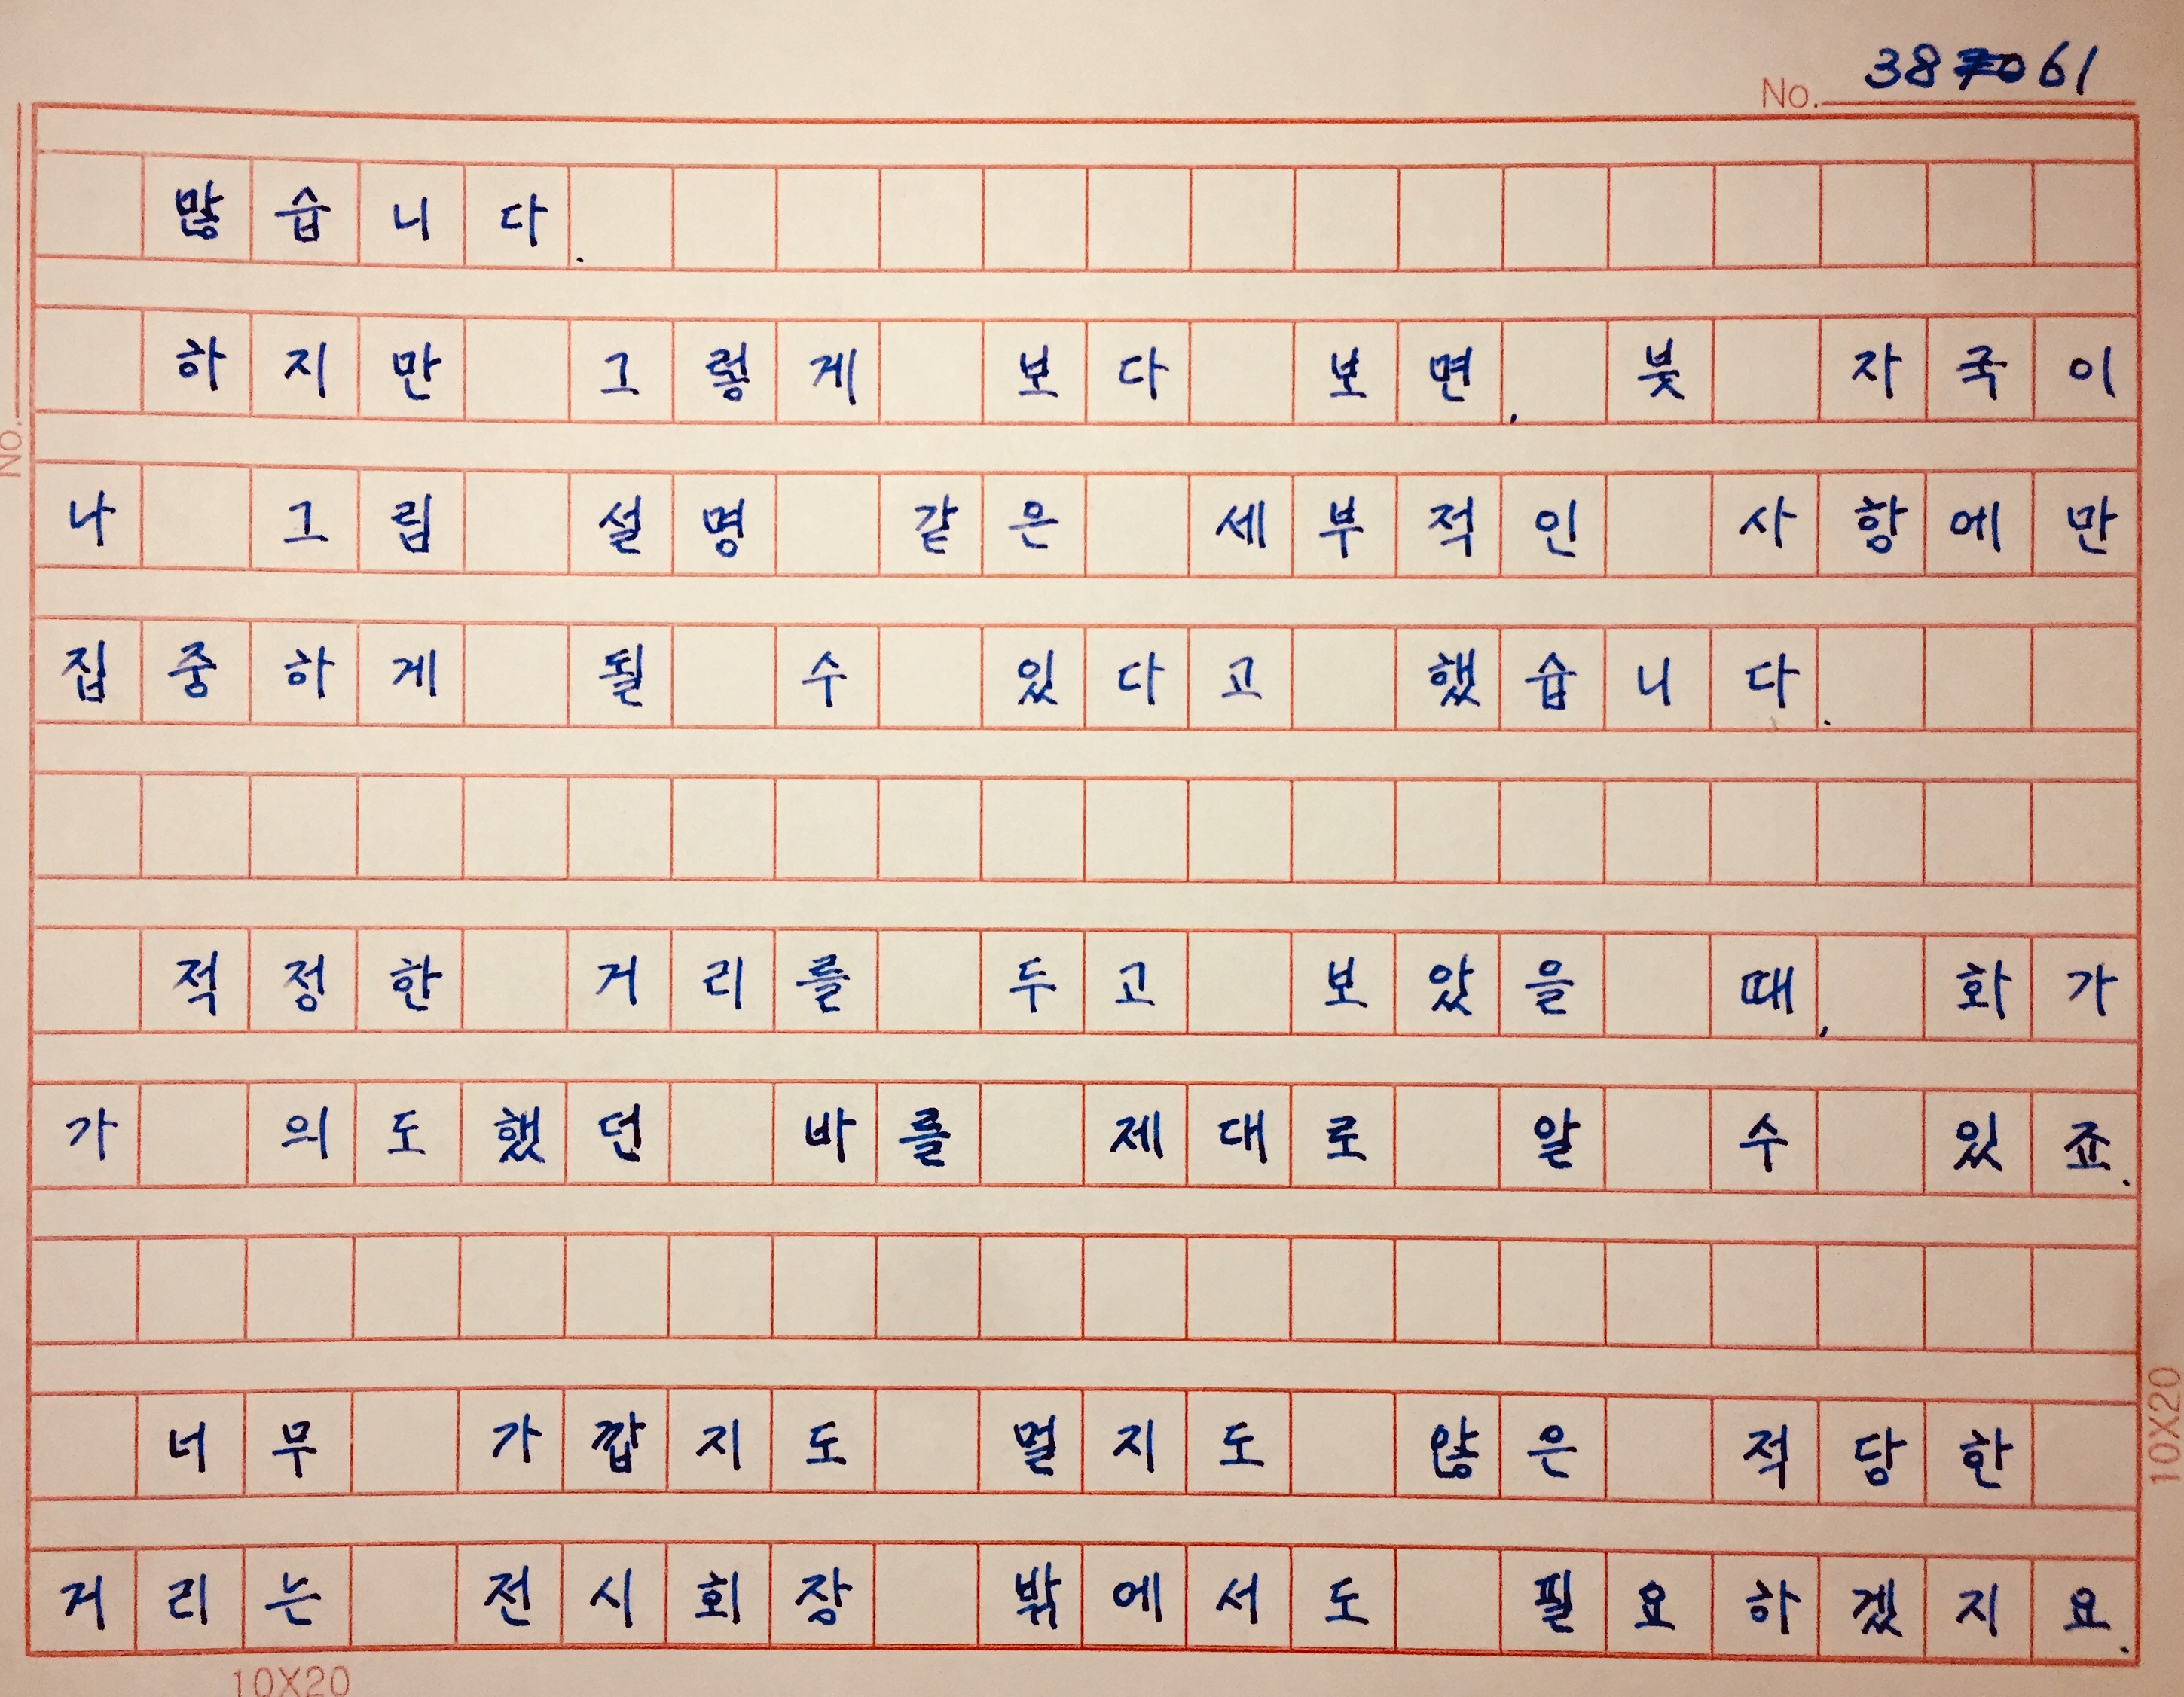 No. 38 61
많습니다.
하지만 그렇게 보다 보면, 붓 자국이
나 그림 설명 같은 세부적인 사항에만
집중하게 될 수 있다고 했습니다.
적정한 거리를 두고 보았을 때, 화가
가 의도했던 바를 제대로 알 수 있죠.
너무 가깝지도 멀지도 않은 적당한
거리는 전시회장 밖에서도 필요하겠지요.
No.
10X20
10X20